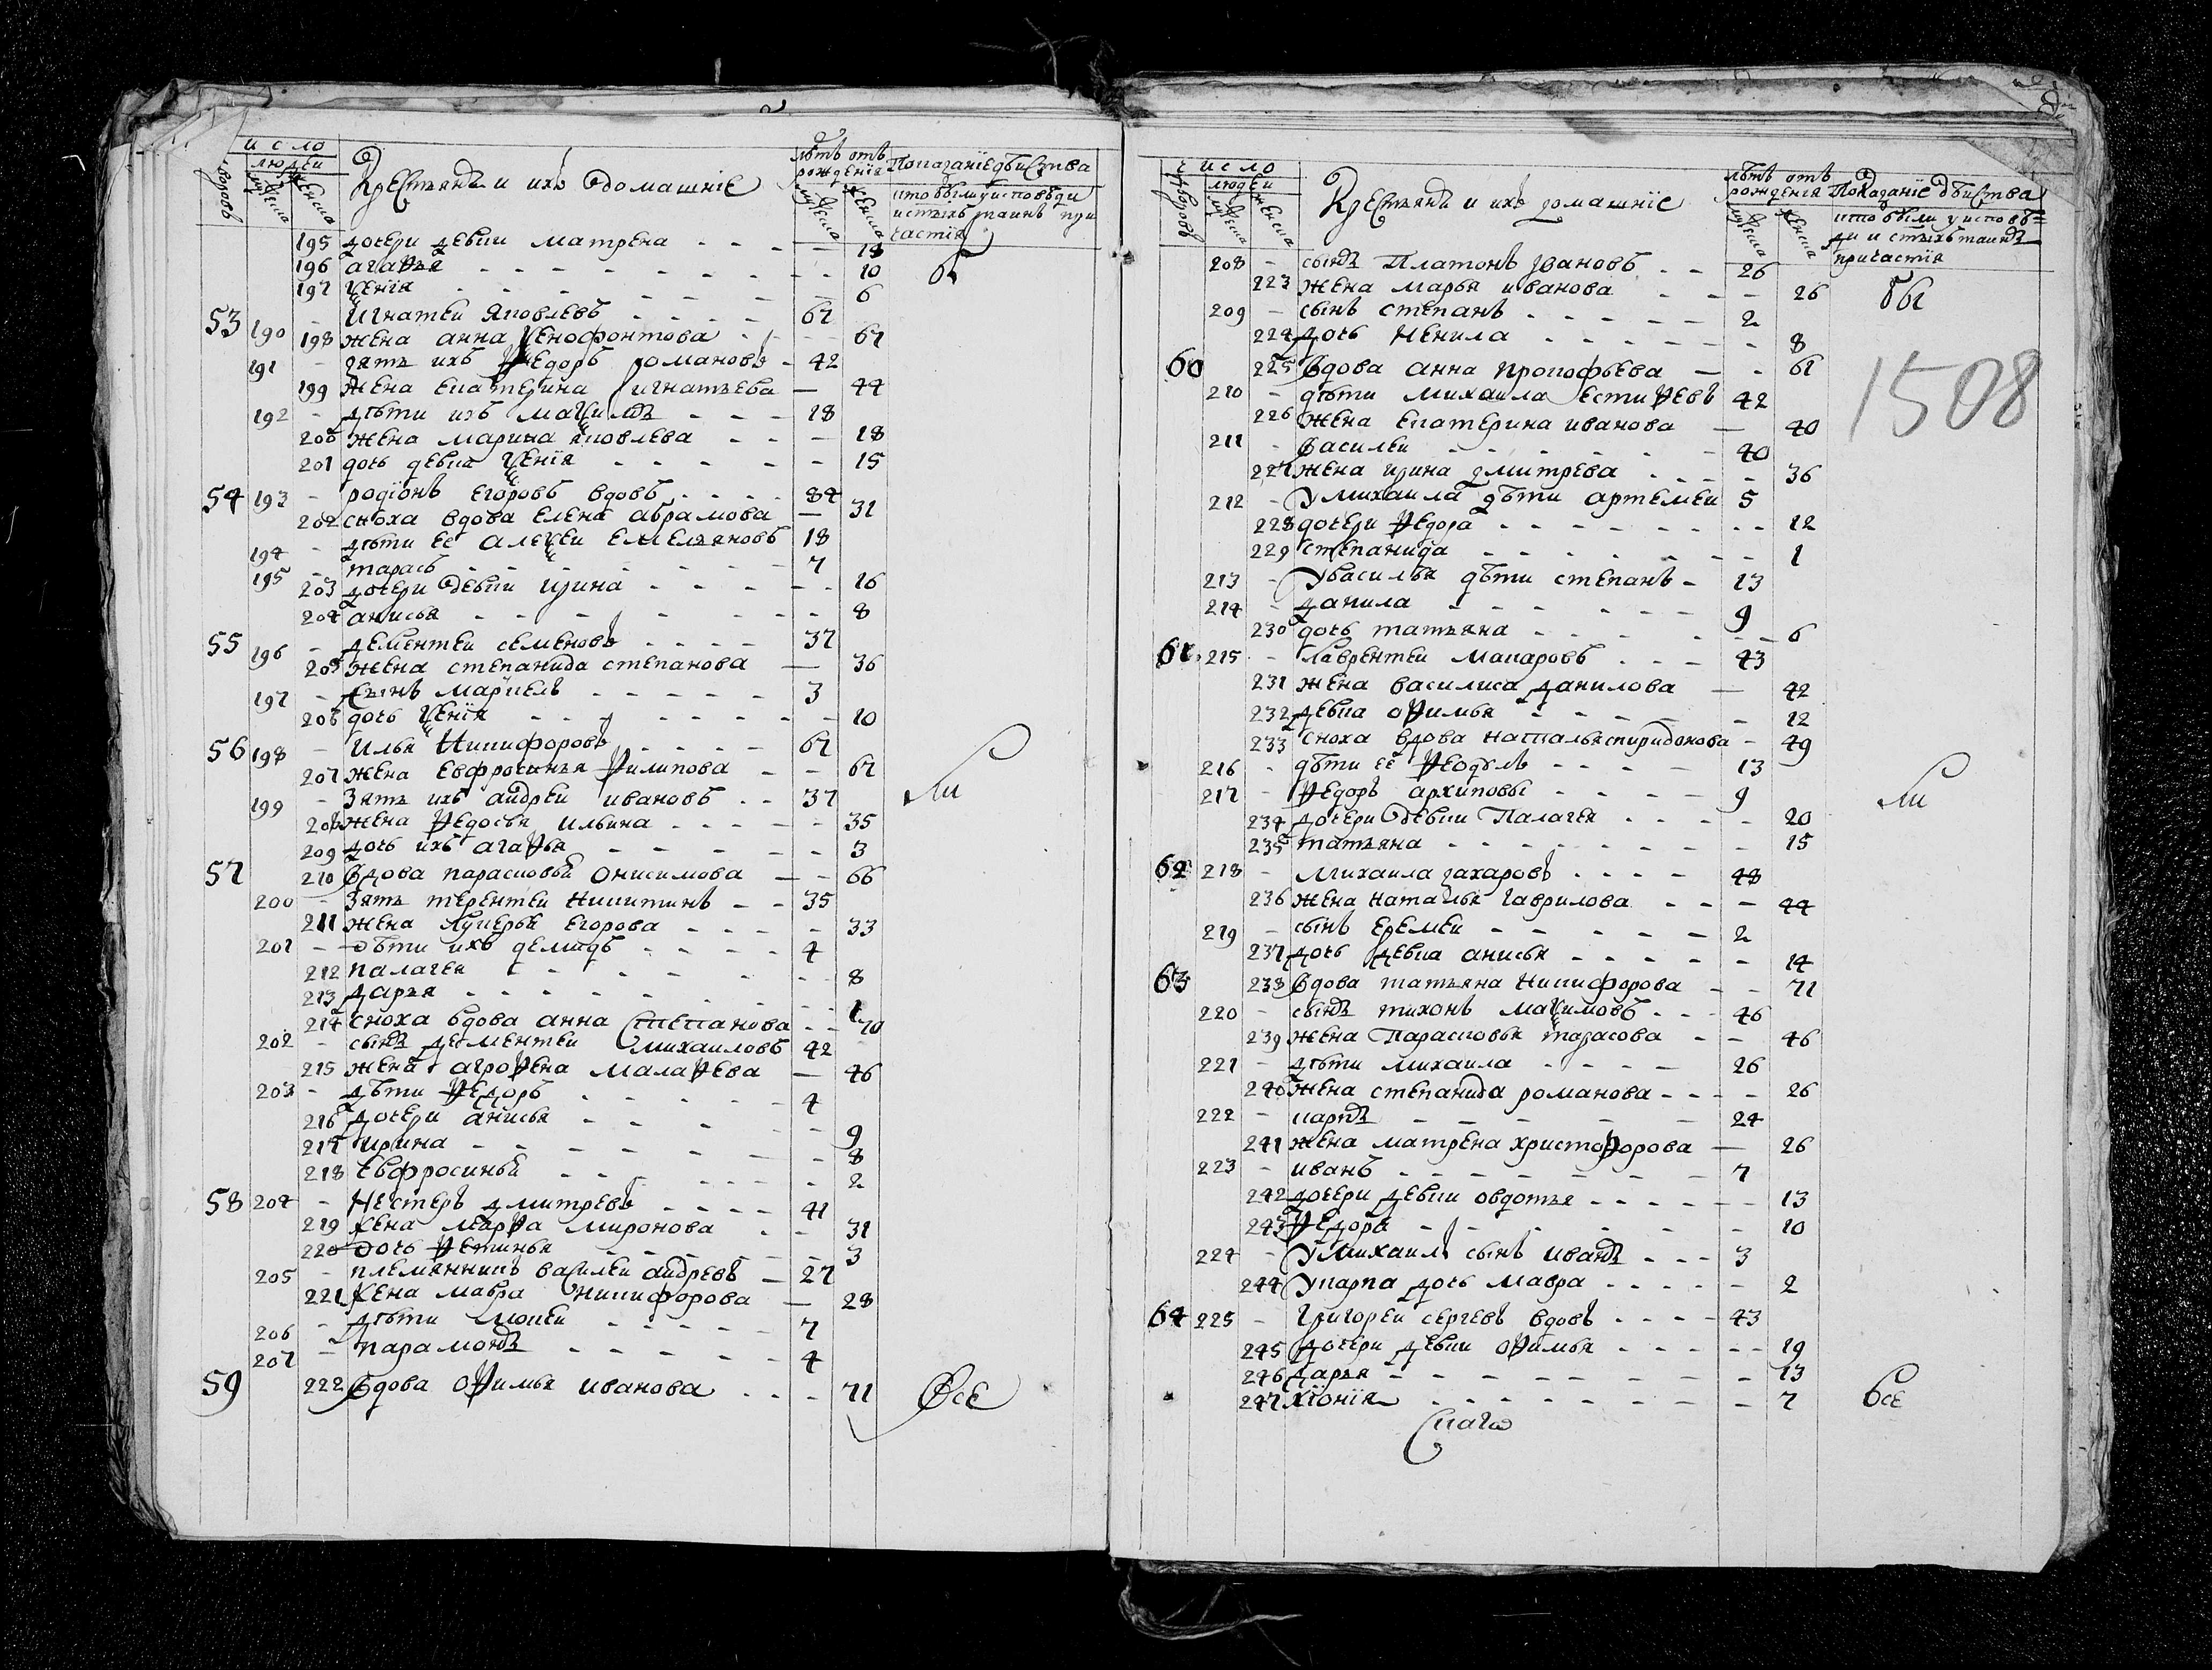 число
людей
дворовъ
мужеска
женска
Крестьянѣ и ихъ домашніе
лѣтъ отъ рожденія
мужеска
женска
Показаніе дѣйства
кто былъ у исповѣди
и с‾тыхъ таинъ при
частія
195 дочери девки матрена - - - 13
196 агаѳья - - - 10 б
197 ѯенія - - - 6
53 190 - Игнатеи яковлевъ - - - 67
198 жена анна ѯенофонтова - - - 67
191 - зять ихъ ѳедоръ романовъ - 42
199 жена екатерина игнатьева — 44
192 - дѣти ихъ маѯимъ - - - 18
200 жена марина яковлева - - - 18
201 дочь девка ѯенія - - - 15
54 193 - родіонъ егоровъ вдовъ - - - 84
202 сноха вдова елена абрамова — 31
194 - дѣти ее алеѯеи емельяновъ 18
195 - тарасъ - - - 7
203 дочери девки ирина - - - 16
204 анисья - - - 8
55 196 - дементеи семеновъ - - - 37
205 жена степанида степанова — 36
197 - сынъ маркелъ - - - 3
206 дочь ѯенія - - - 10
56 198 - илья Никифоровъ - - - 67
207 жена евфросинья ѳилипова - - 67
199 - Зять ихъ андреи ивановъ - - 37 ли
208 жена ѳедосья ильина - - - 35
209 дочь ихъ агаѳья - - - 3
57 210 Вдова парасковья онисимова — 66
200 - Зять терентеи Никитинъ - - 35
211 жена лукерья егорова - - - 33
201 - дѣти ихъ демидъ - - - 4
212 палагея - - - 8
213 дарья - - - 1
214 сноха вдова анна степанова - - 70
202 - сынъ дементеи михаиловъ 42
215 жена агроѳена малаѳева — 46
203 - дѣти ѳедоръ - - - 4
216 дочери анисья - - - 9
217 ирина - - - 8
218 евфросинья - - - 2
58 204 - Нестеръ дмитревъ - - - 41
219 жена марѳа миронова - - 31
220 дочь ѳетинья - - - 3
205 - племянникъ василеи андревъ — 27
221 жена мавра никифорова — 28
206 - дѣти мокеи - - - 7
207 - парамонъ - - - 4
59 222 Вдова оѳимья иванова - - - 71 Все
число
людеи
дворовъ
мужеска
женска
Крестьянѣ и ихъ домашніе
лѣтъ отъ рожденія
мужеска
женска
Показаніе дѣйства
кто были у исповѣ=
ди и с‾тыхъ таинъ
причастія
208 - сынъ Платонъ ивановъ - - 26
223 жена марья иванова - - - 26 бы
209 - сынъ степанъ - - - 2
224 дочь Ненила - - - 8
1508
60 225 Вдова анна прокофьева — - 61
210 - дѣти михаила естиѳевъ 42
226 жена екатерина иванова — 40
211 - Василеи - - - 40
227 жена ирина дмитрева - - - 36
212 - У михаила дѣти артемеи 5
228 дочери ѳедора - - - 12
229 степанида - - - 1
213 - У василья дѣти степанъ - 13
214 - данила - - - 9
230 дочь татьяна - - - 6
61 215 - Лаврентеи макаровъ - - - 43
231 жена василиса данилова — 42
232 девка оѳимья - - - 12
233 сноха вдова наталья спиридонова - 49
216 - дѣти ее ѳеодулъ - - - 13
217 - ѳедоръ архиповы - - - 9 ли
234 дочери девки Палагея - - - 20
235 татьяна - - - 15
62 218 - михаила захаровъ - - - 48
236 жена наталья гаврилова - - - 44
219 - сынъ еремеи - - - 2
237 дочь девка анисья - - - 14
63 238 Вдова татьяна Никифорова - - 71
220 - сынъ тихонъ маѯимовъ - - - 46
239 жена Парасковья тарасова - - 46
221 - дѣти михаила - - - 26
240 жена степанида романова - - - 26
222 - карпъ - - - 24
241 жена матрена христоѳорова — 26
223 - иванъ - - - 7
242 дочери девки овдотья - - - 13
243 ѳедора - - - 10
224 - У Михаилы сынъ иванъ - - - 3
244 У карпа дочь мавра - - - 2
64 225 - Григореи сергевъ вдовъ - - - 43
245 дочери девки оѳимья - - - 19
246 дарья - - - 13
247 хіонія - - - 7 все